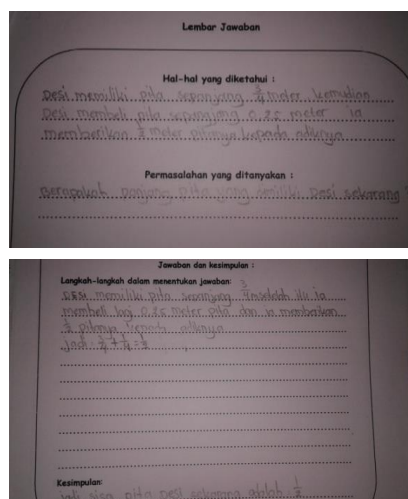 Lembar Jawaban
Hal-hal yang diketahui :
Desi memiliki pita sepanjang meter kemudian
Desi membeli pita sepanjang 0.25 meter ia
memberikan meter pitanya kepada adiknya
Permasalahan yang ditanyakan :
Berapakah panjang pita yang dimiliki Desi sekarang
Jawaban dan kesimpulan :
Langkah-langkah dalam menentukan jawaban:
Desi memiliki pita sepanjang setelah itu ia
membeli lagi 0.25 meter pita dan ia memberikan
pitanya kepada adiknya
Jadi
Kesimpulan:
Jadi sisa pita Desi sekarang adalah